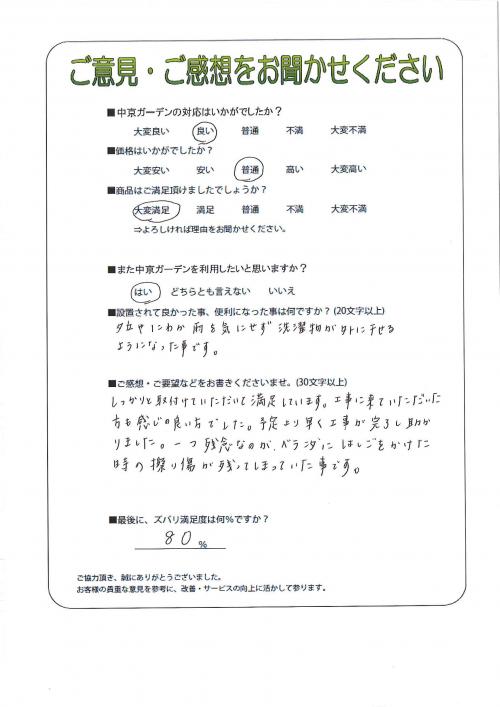 ご意見・ご感想をお聞かせください
■中京ガーデンの対応はいかがでしたか？
大変良い 良い 普通 不満 大変不満
■価格はいかがでしたか？
大変安い 安い 普通 高い 大変高い
■商品はご満足頂けましたでしょうか？
大変満足 満足 普通 不満 大変不満
⇒よろしければ理由をお聞かせください。
■また中京ガーデンを利用したいと思いますか？
はい どちらとも言えない いいえ
■設置されて良かった事、便利になった事は何ですか？(20文字以上)
夕立やにわか雨を気にせず洗濯物が外に干せる
ようになった事です。
■ご感想・ご要望などをお書きくださいませ。(30文字以上)
しっかりと取付けていただいて満足しています。工事に来ていただいた
方も感じの良い方でした。予定より早く工事が完了し助か
りました。一つ残念なのが、ベランダにはしごをかけた
時の擦り傷が残ってしまっていた事です。
■最後に、ズバリ満足度は何％ですか？
80％
ご協力頂き、誠にありがとうございました。
お客様の貴重な意見を参考に、改善・サービスの向上に活かして参ります。